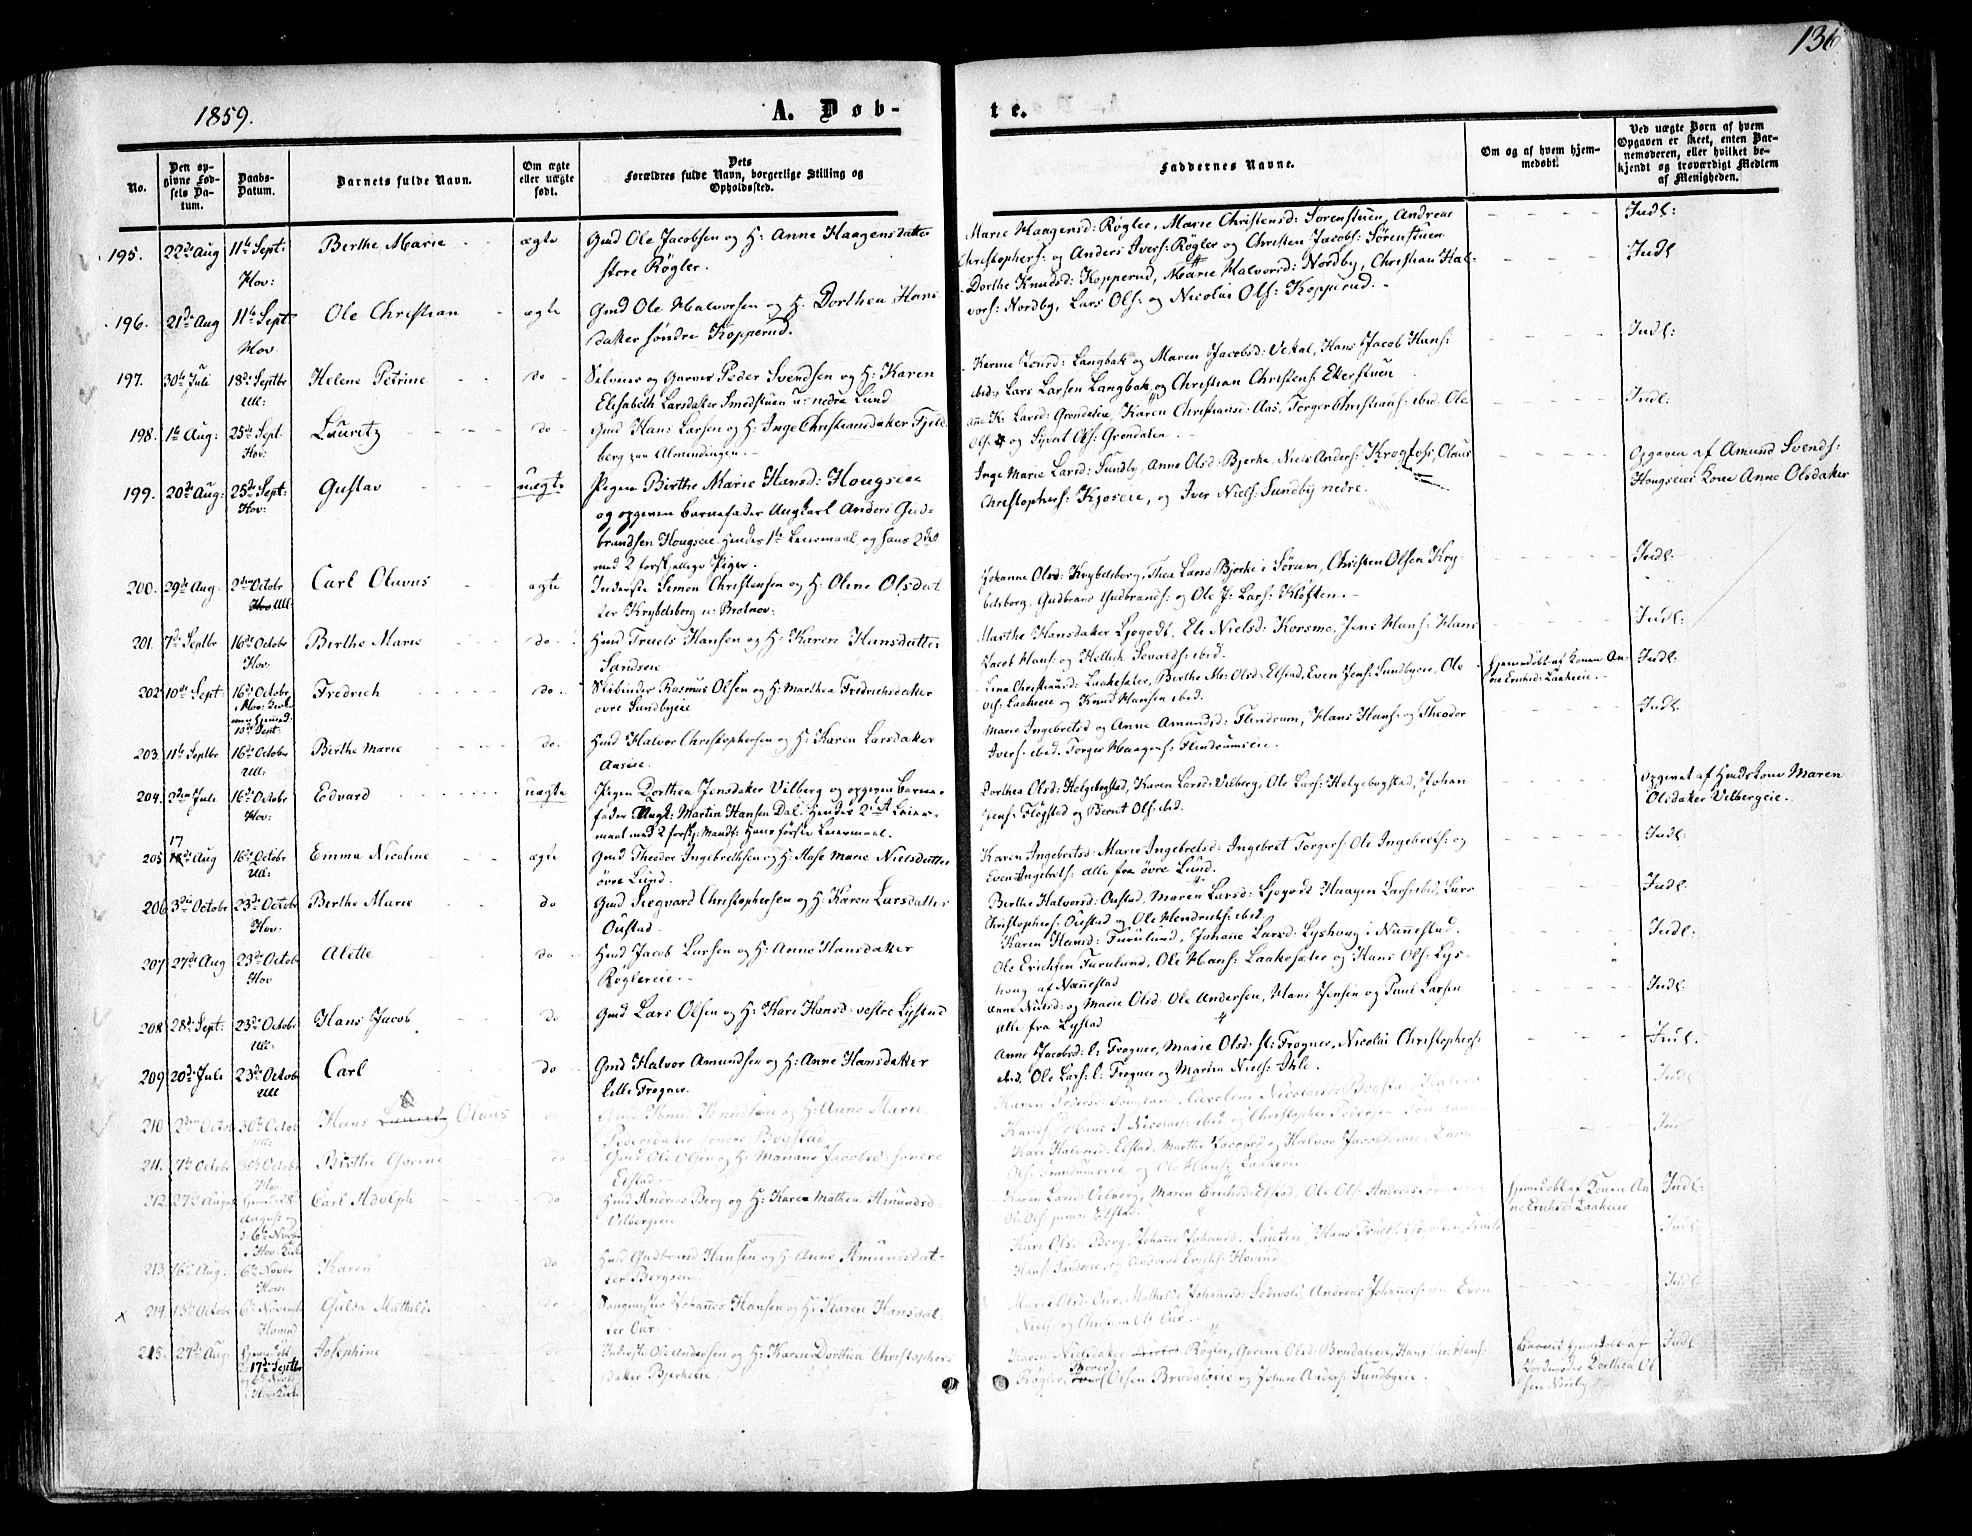 136
1859.
A. Døb-
te.
No.
Den op-
givne Fød-
sels Da-
tum.
Daabs-
Datum.
Barnets fulde Navn.
Om ægte
eller uægte
født.
Dets
Forældres fulde Navn, borgerlige Stilling og
Opholdssted.
Faddernes Navne.
Om og af hvem hjem-
medøbt.
Ved uægte Børn af hvem
Opgaven er skeet, enten Bar-
nemoderen, eller hvilket be-
kjendt og troværdigt Medlem
af Menigheden.
195. 22de Aug 11te Sept: Berthe Marie ægte Gmd Ole Jacobsen og H: Anne Haagensdatter
Hov: store Røgler.
Marie Haagensd: Røgler, Marie Christensd: Sørenstuen, Andreas Indl:
Christophers: og Anders Ivers: Røgler og Christen Jacobs: Sørenstuen
196. 21de Aug 11te Sept Ole Christian ægte Gmd Ole Halvorsen og H. Dorthea Hans
Hov datter søndre Kopperud.
Dorthe Knudsd: Kopperud, Marie Halvorsd: Nordby, Christian Hal- Indl
vors: Nordby, Lars Ols: og Nicolai Ols: Kopperud.
197. 30te Juli 18de Septbr Helene Petrine do Selveier og Garver Peder Svendsen og H: Karen
Ull: Elisabeth Larsdatter Smedstuen u: nedre Lund
Langbak og Maren Jacobsd: Hans Jacob Hans: Indl:
ibid, Lars Larsen Langbak og Christian Christens:
198. 1te Aug: 25de Sept. Lauritz do Gmd Hans Larsen og H: Inge Christiansdatter Fjeld-
Hov: berg paa Almindingen.
Larsd: Grøndalen, Karen Christiansd: Aas, Torger Christians: ibid. Ole Indl:
Ols: og Syvert Ols: Grøndalen.
199. 20de Aug: 25de Sept: Gustav uægte Pigen Birthe Marie Hansd: Hougseie
Hov: og opgiven Barnefader Ungkarl Anders Gud-
brandsen Hougseie. Hendes 1te Leiermaal, og hans 2det
med 2 forskjellige Piger.
Inge Marie Larsd: Sundby, Anne Olsd: Bjerke, Niels Anders: Krogfoss, Olaus Opgiven af Amund Svends:
Christophers: Kjoseie, og Iver Niels: Sundby nedre. Hougseies Kone Anne Olsdatter
200. 29de Aug 2den Octobr Carl Olavus ægte Inderste Simon Christensen og H: Oline Olsdat
Ull: ter Krybelsborg u: Brotnov:
Johanne Olsd: Krybelsborg, Thea Larsd Bjerke i Sørum, Christen Olsen Kry Indl:
belsborg, Gudbrand Gudbrands: og Ole J: Lars: Kløften.
201. 7de Septbr 16de Octobr Birthe Marie do Hmd Truels Hansen og H: Karen Hansdatter
Hov: Sandseie
Marthe Hansdatter Ljøgodt, Ele Nielsd: Korsmo, Jens Hans: Hans Indl:
Jacob Hans: og Hellik Sevalds: ibid.
202 10de Sept 16de Octobr Fredrich do Skibinder Rasmus Olsen og H: Marthea Fredrichsdatter
øvre Sundbyeie
Lina Christiansd: Laakesæter, Berthe M: Olsd: Elstad, Even Jens: Sundbyeie, Ole Hjemmedøbt af Konen An- Indl:
Ols: Laakeie og Knud Hansen ibid. ne Erichsd: Laakeie.
203. 11te Septbr 16de Octobr Berthe Marie do Hmd Halvor Christophersen og H: Karen Larsdatter
Ull: Aaseie.
Marie Ingebretsd og Anne Amundsd: Flindrum, Hans Hans: og Theodor Indl:
Ivers: ibid. Torger Haagens: Flindrumseie.
204. 2den Juli 16de Octobr Edvard uægte Pigen Dorthea Jensdatter Vilberg og opgiven Barne-
Hov: fader Ungk: Martin Hansen Dal. Hendes 2det Leier-
maal med 2 forskj: Mandf: Hans første Leiermaal.
Dorthea Olsd: Helgebostad, Karen Larsd: Vilberg, Ole Lars: Helgebostad, Johan Opgivet af Hmds Kone Maren
Jens: Fløgstad og Bernt Ols: ibid. Olsdatter Vilbergeie.
205. 17 Aug 16de Octobr Emma Nicoline ægte Gmd Theodor Ingebrethsen og H: Hase Marie Nielsdatter
Ull: øvre Lund.
Karen Ingebretsd: Marie Ingebretsd: Ingebret Torgers: Ole Ingebrets: og Indl:
Even Ingebrets: alle fra øvre Lund.
206 3die Octobr 23de Octobr Berthe Marie do Gmd Siegvard Christophersen og H: Karen Larsdatter
Hov: Oustad.
Berthe Halvorsd: Oustad, Maren Larsd: Ljøgodt, Haagen Lars: ibid, Lars Indl:
Christophers: Oustad og Ole Hendrichs: ibid.
207 27de Aug 23de Octobr Alette do Hmd Jacob Larsen og H: Anne Hansdatter
Hov Røglereie.
Karen Hansd: Furulund, Johanne Larsd: Lyshoug i Nannestad. Indl:
Ole Erichsen Furulund, Ole Hans: Laakesæter og Hans Ols: Lys-
houg af Nannestad
208. 28de Sept: 23de Octobr Hans Jacob do Gmd Lars Olsen og H: Kari Hansd: vestre Lystad
Ull:
Anne Nielsd: og Marie Olsd: Ole Andersen, Hans Jensen og Paul Larsen Indl:
alle fra Lystad
209 20de Juli 23de Octobr Carl do Gmd Halvor Amundsen og H: Anne Hansdatter
Ull lille Frogner.
Anne Jacobsd: l: Frogner, Marie Olsd: st: Frogner, Nicolai Christophers: Indl.
ibid. Ole Lars: l: Frogner og Martin Niels: Ihle.
210 2den Octobr 30te Octobr Hans Olaus do Gmd Knud Knudsen og H: Anne Marie
Ull: Pedersdatter søndre Bogstad
Karen Pedersd: Caroline Nicolaisd: Bogstad, Halvor Indl
Hans J. Nicolais: ibid og Christopher Pedersen
211. 7de Octobr 30te Octobr Birthe Gorine do Gmd Ole Olsen og H: Mariane Jacobsd: søndre
Hov Elstad.
Kari Halvorsd: Elstad, Marthe Jacobsd og Halvor Jacobs: ibid, Lars Indl
Ols: og Ole Hans: Laakeie
212 27de August Hjemmed: 28de Carl Adolph do Hmd Andreas Berg og H: Karen Mathea Amundsd:
August og Vilbergeie
i 6te Novbr
i Hov: Kirke
Karen Larsd: Vilberg, Maren Erichsd: Elstad, Ole Ols: Hjemmedøbt af Konen An- Indl:
Elstad. ne Erichsd: Laakeie
213. 16de Aug: 6te Novbr Karen do Hmd Gudbrand Hansen og H. Anne Amundsdat-
Hov: ter Bergseie
Kari Olsd: Berg, Johanne Johannesd: Hans Truels: Indl
Hans: og Anders Erichs: Hovind.
214. 13de Octobr 6te Novembr Gulda Mathilde do Johannes Hansen og H: Karen Hansdat-
Hovind ter Our
Marie Olsd: Our, Mathilde Johannesd: Andreas Johannes: Even Indl
Niels: og Christian Ols: Our.
215. 27de Aug Hjemmedøbt Josephine do Inderste Ole Andersen og H: Karen Dorthea Christophers
17de Septbr datter Bjerkeie
i Hov: Kirke
Karen Nielsdatter Røgler, Gorine Olsd: Brudaleie, Hans Christians: Barnet hjemmedøbt af Indl
Røgler, Olsen Brudaleie og Johan Anders: Sundbyeie. Jordmoder Dorthea Ol
sen Nordby